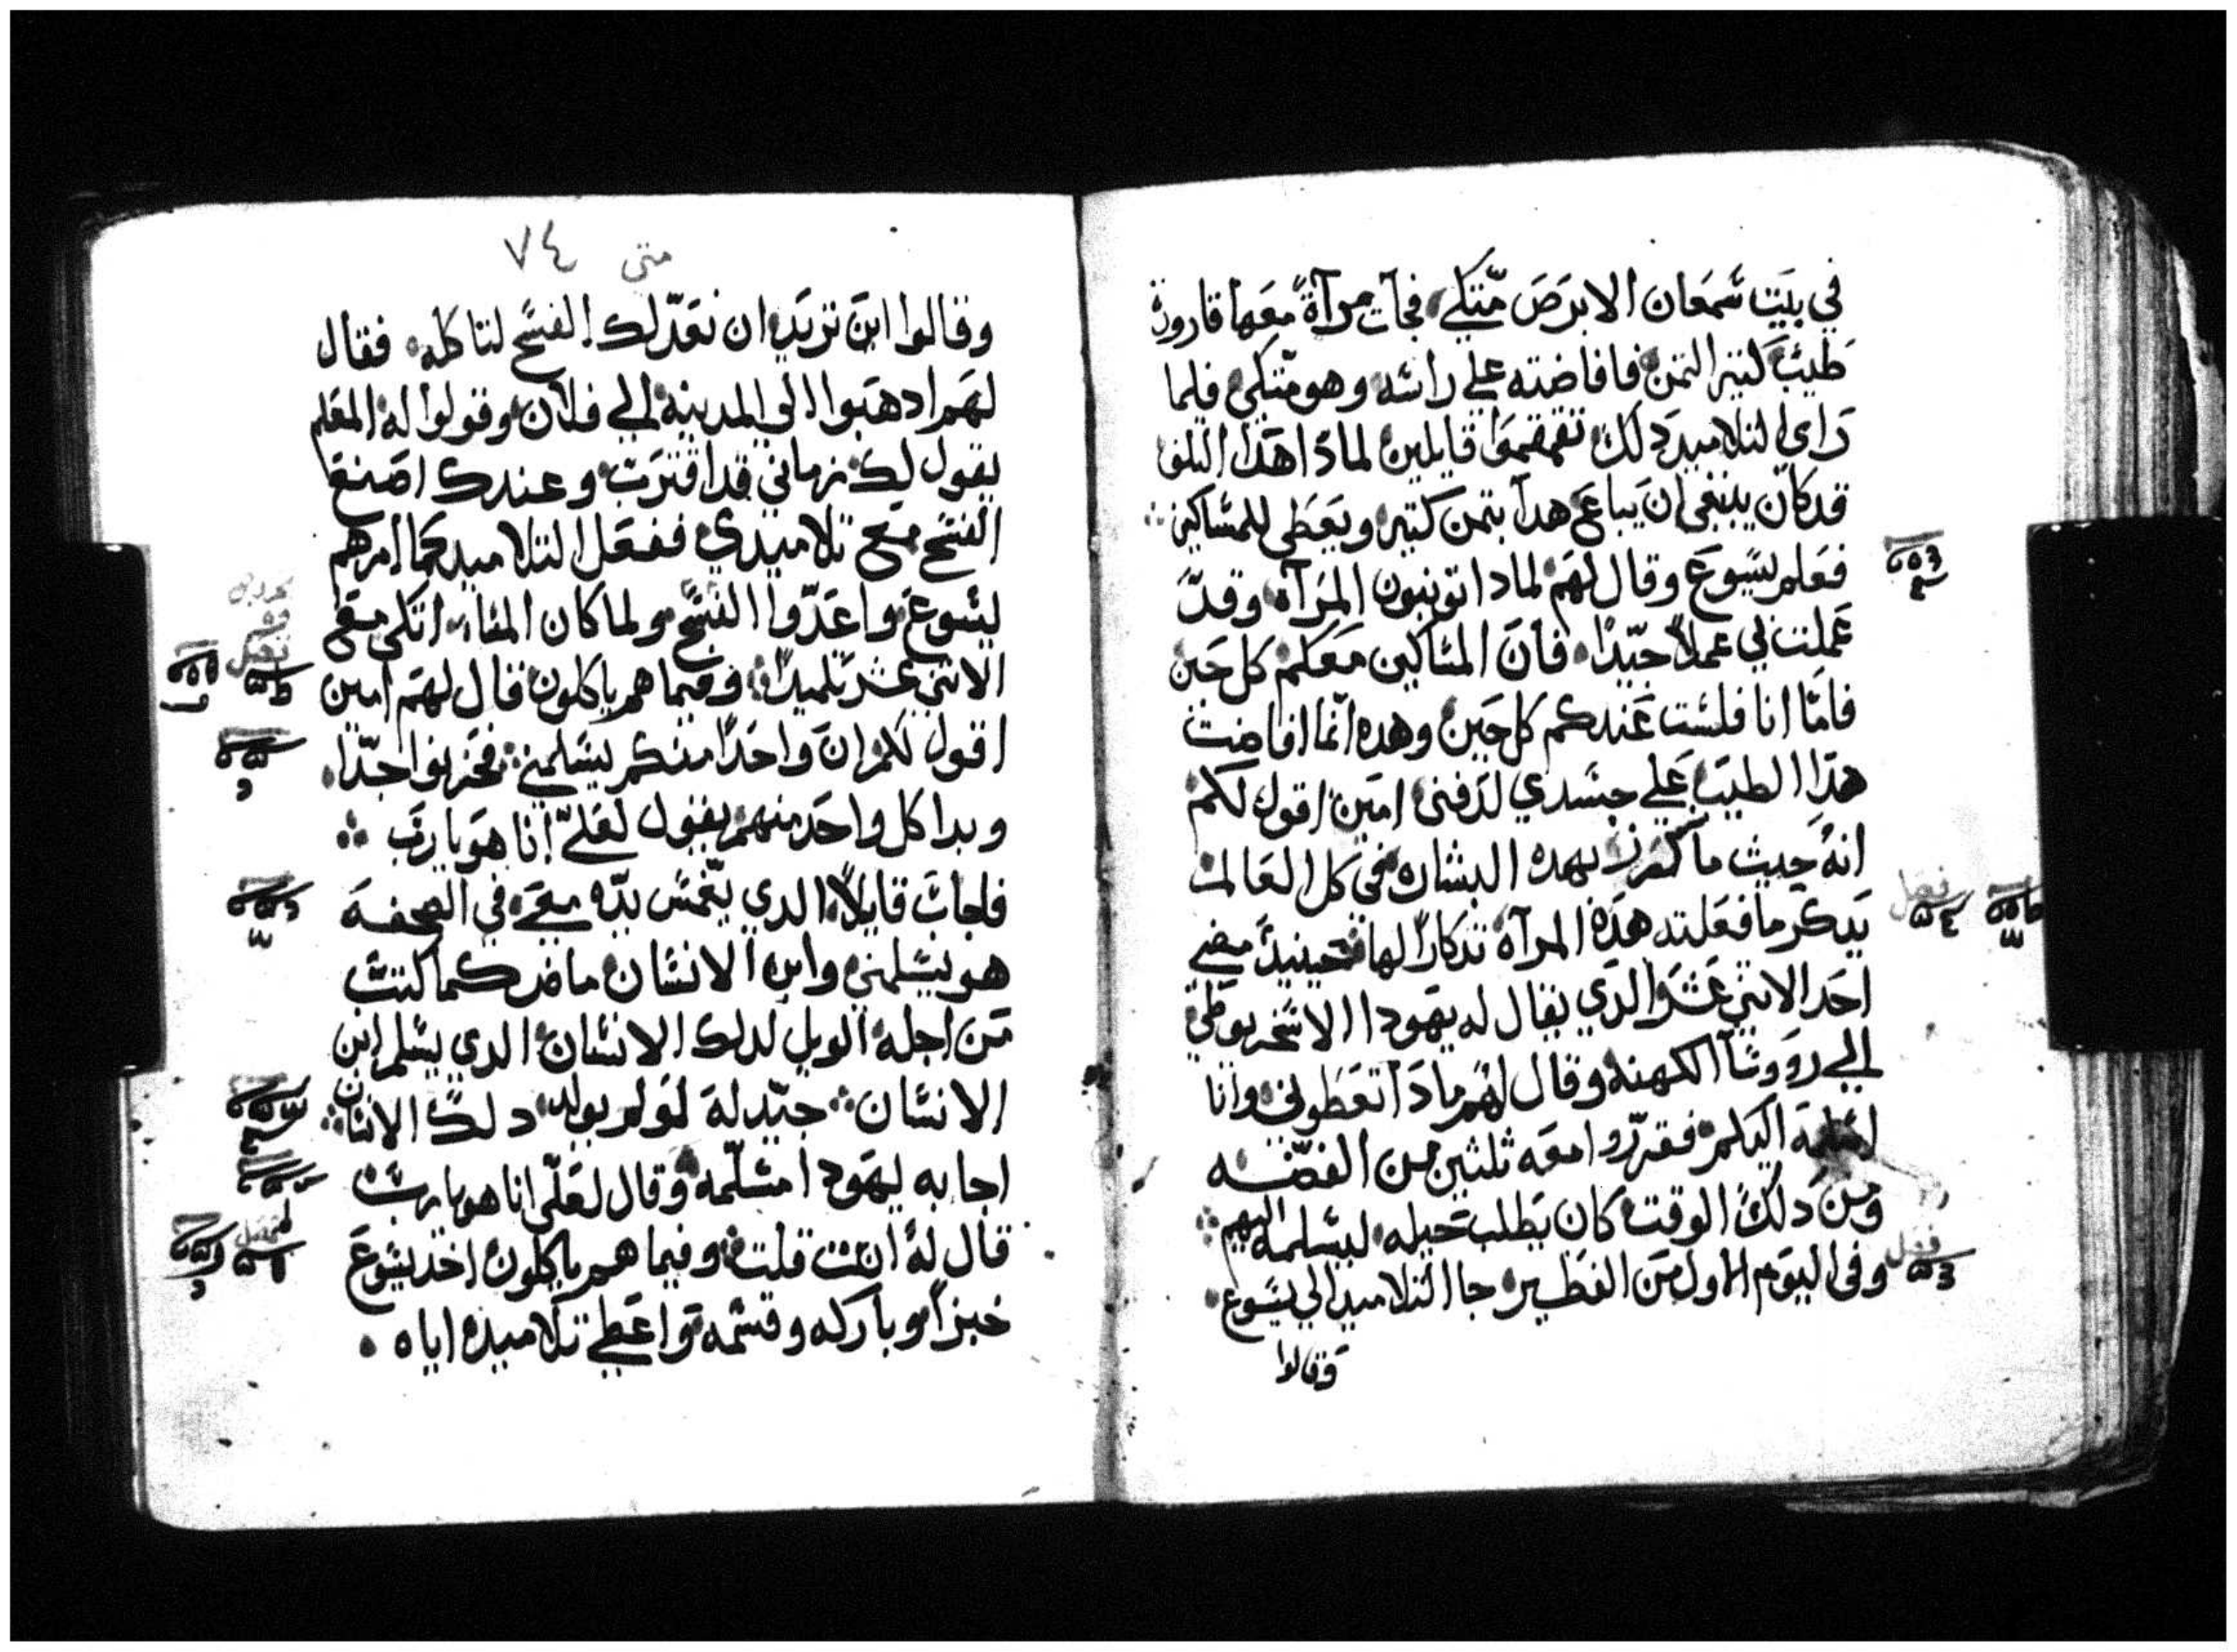 في بيت شمعان الابرص متكي، فجآت مرآة معها قارورة
طيب كتير التمن فافاضته علي راسه وهو متكي فلما
راي التلاميد دلك تقمقموا قايلين لمادا هدا التلف
قد كان ينبغي ان يباع هدا بتمن كتير ويعطي للمساكين
فعلم يسوع وقال لهم لمادا تونبون المرآه وقد
عملت بي عملاً جيّدًا، فان المساكين معكم كل حين
فامّا انا فلست عندكم كل حين وهده انما افاضت
هدا الطيب علي جسدي لدفني امين اقول لكم
انه حيث ما كرز بهده البشاره في كل العالم
يدكر ما فعلته هده المرآة تدكارًا لها فحينيد مضي
احد الاثني عشر الدي يقال له يهودا الاسخريوطي
الي رووسآ الكهنه وقال لهم مادا تعطوني وانا
اسلمه اليكم فقرّروا معه ثلثين من الفضّه
ومن دلك الوقت كان يطلب حيله ليسلمه اليهم
وفي اليوم الاول من الفطير جا التلاميد الي يسوع
وقالوا
متي ٧٤
وقالوا اين تريد ان نعدّ لك الفسح لتاكله فقال
لهم ادهبوا الي المدينه الي فلان وقولوا له المعلم
يقول لك زماني قد اقترب وعندك اصنع
الفسح مع تلاميدي ففعل التلاميد كما امرهم
يسوع واعدّوا الفسح ولما كان المساء اتكي مع
الاتني عشر تلميدًا وفيما هم ياكلون قال لهم امين
اقول لكم ان واحدًا منكم يسلمني فحزنوا جدّا
وبدا كل واحد منهم يقول لعليّ انا هو يا رب
فاجاب قايلاً الدي يغمس يده معي في الصحفه
هو يسلمني وابن الانسان ماض كما كتب
من اجله الويل لدلك الانسان الدي يسلم ابن
الانسان جيّد له لو لم يولد دلك الانسان
اجابه يهودا مسلّمه وقال لعلّي انا هو يا رب
قال له انت قلت وفيما هم ياكلون اخد يسوع
خبزاً وباركه وقسمه واعطي تلاميده اياه